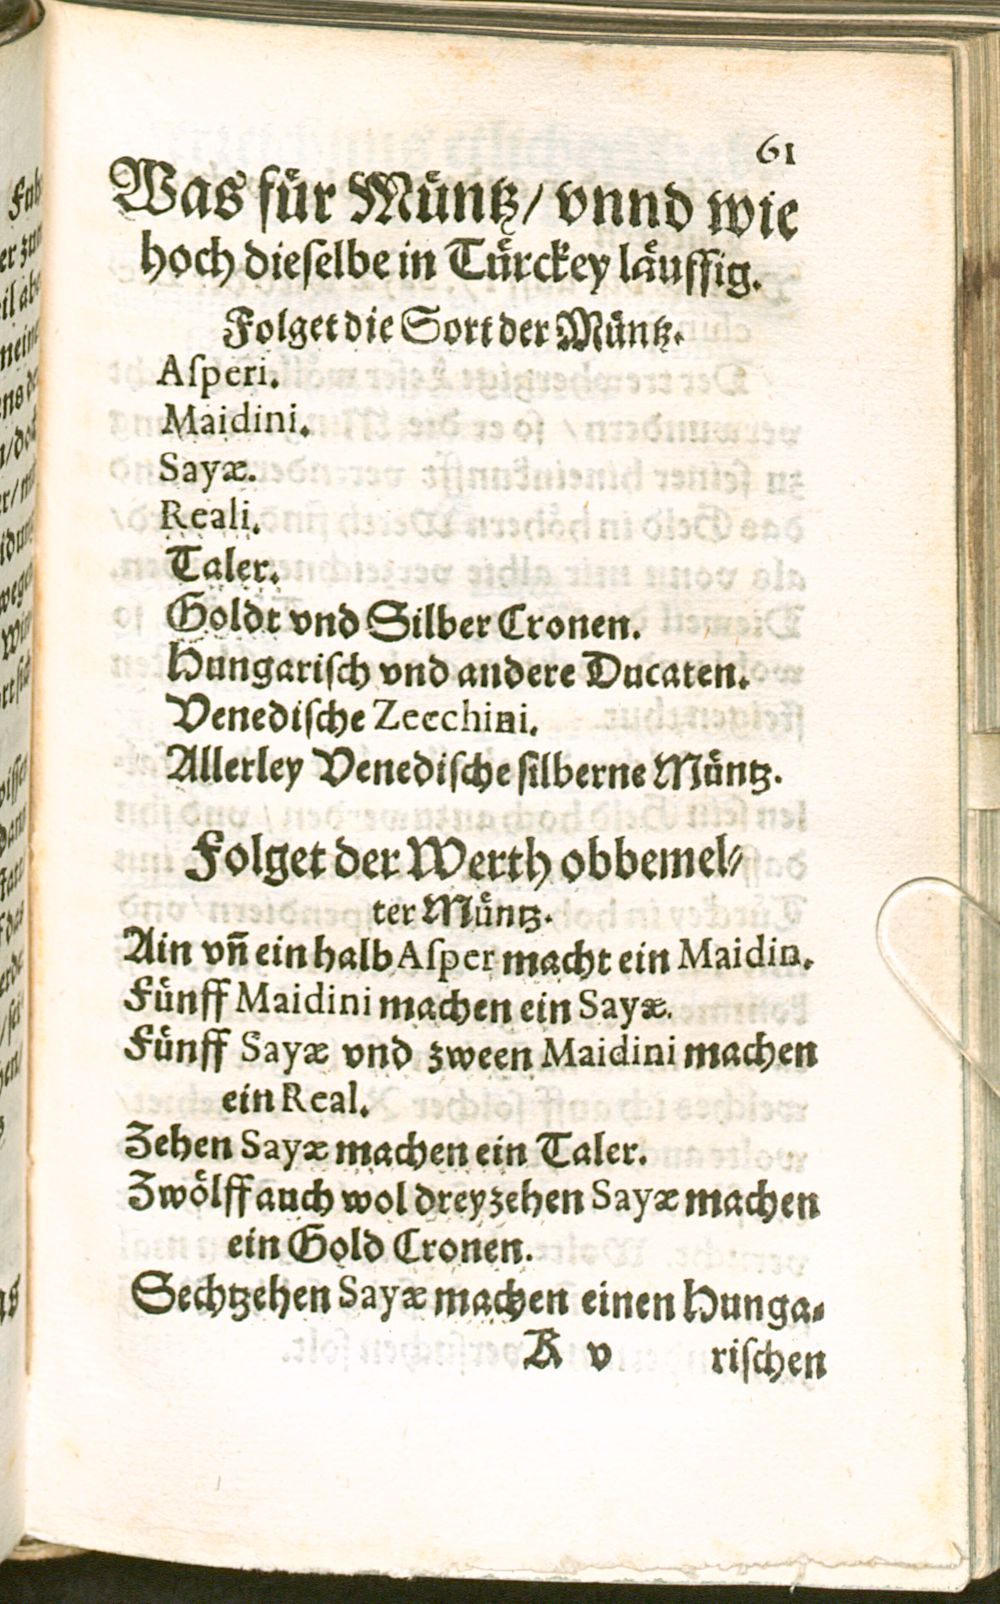 61
Was für Müntz/ vnnd wie
hoch dieselbe in Türckey läuffig.
Folget die Sort der Müntz.
Aſperi.
Maidini.
Sayæ.
Reali.
Taler.
Goldt vnd Silber Cronen.
Hungariſch vnd andere Ducaten.
Venediſche Zecchini.
Allerley Venediſche ſilberne Müntz.
Folget der Werth obbemel⸗
ter Müntz.
Ain vñ ein halb Aſper macht ein Maidin.
Fünff Maidini machen ein Sayæ.
Fünff Sayæ vnd zween Maidini machen
ein Real.
Zehen Sayæ machen ein Taler.
Zwölff auch wol dreyzehen Sayæ machen
ein Gold Cronen.
Sechtzehen Sayæ machen einen Hunga⸗
K v riſchen